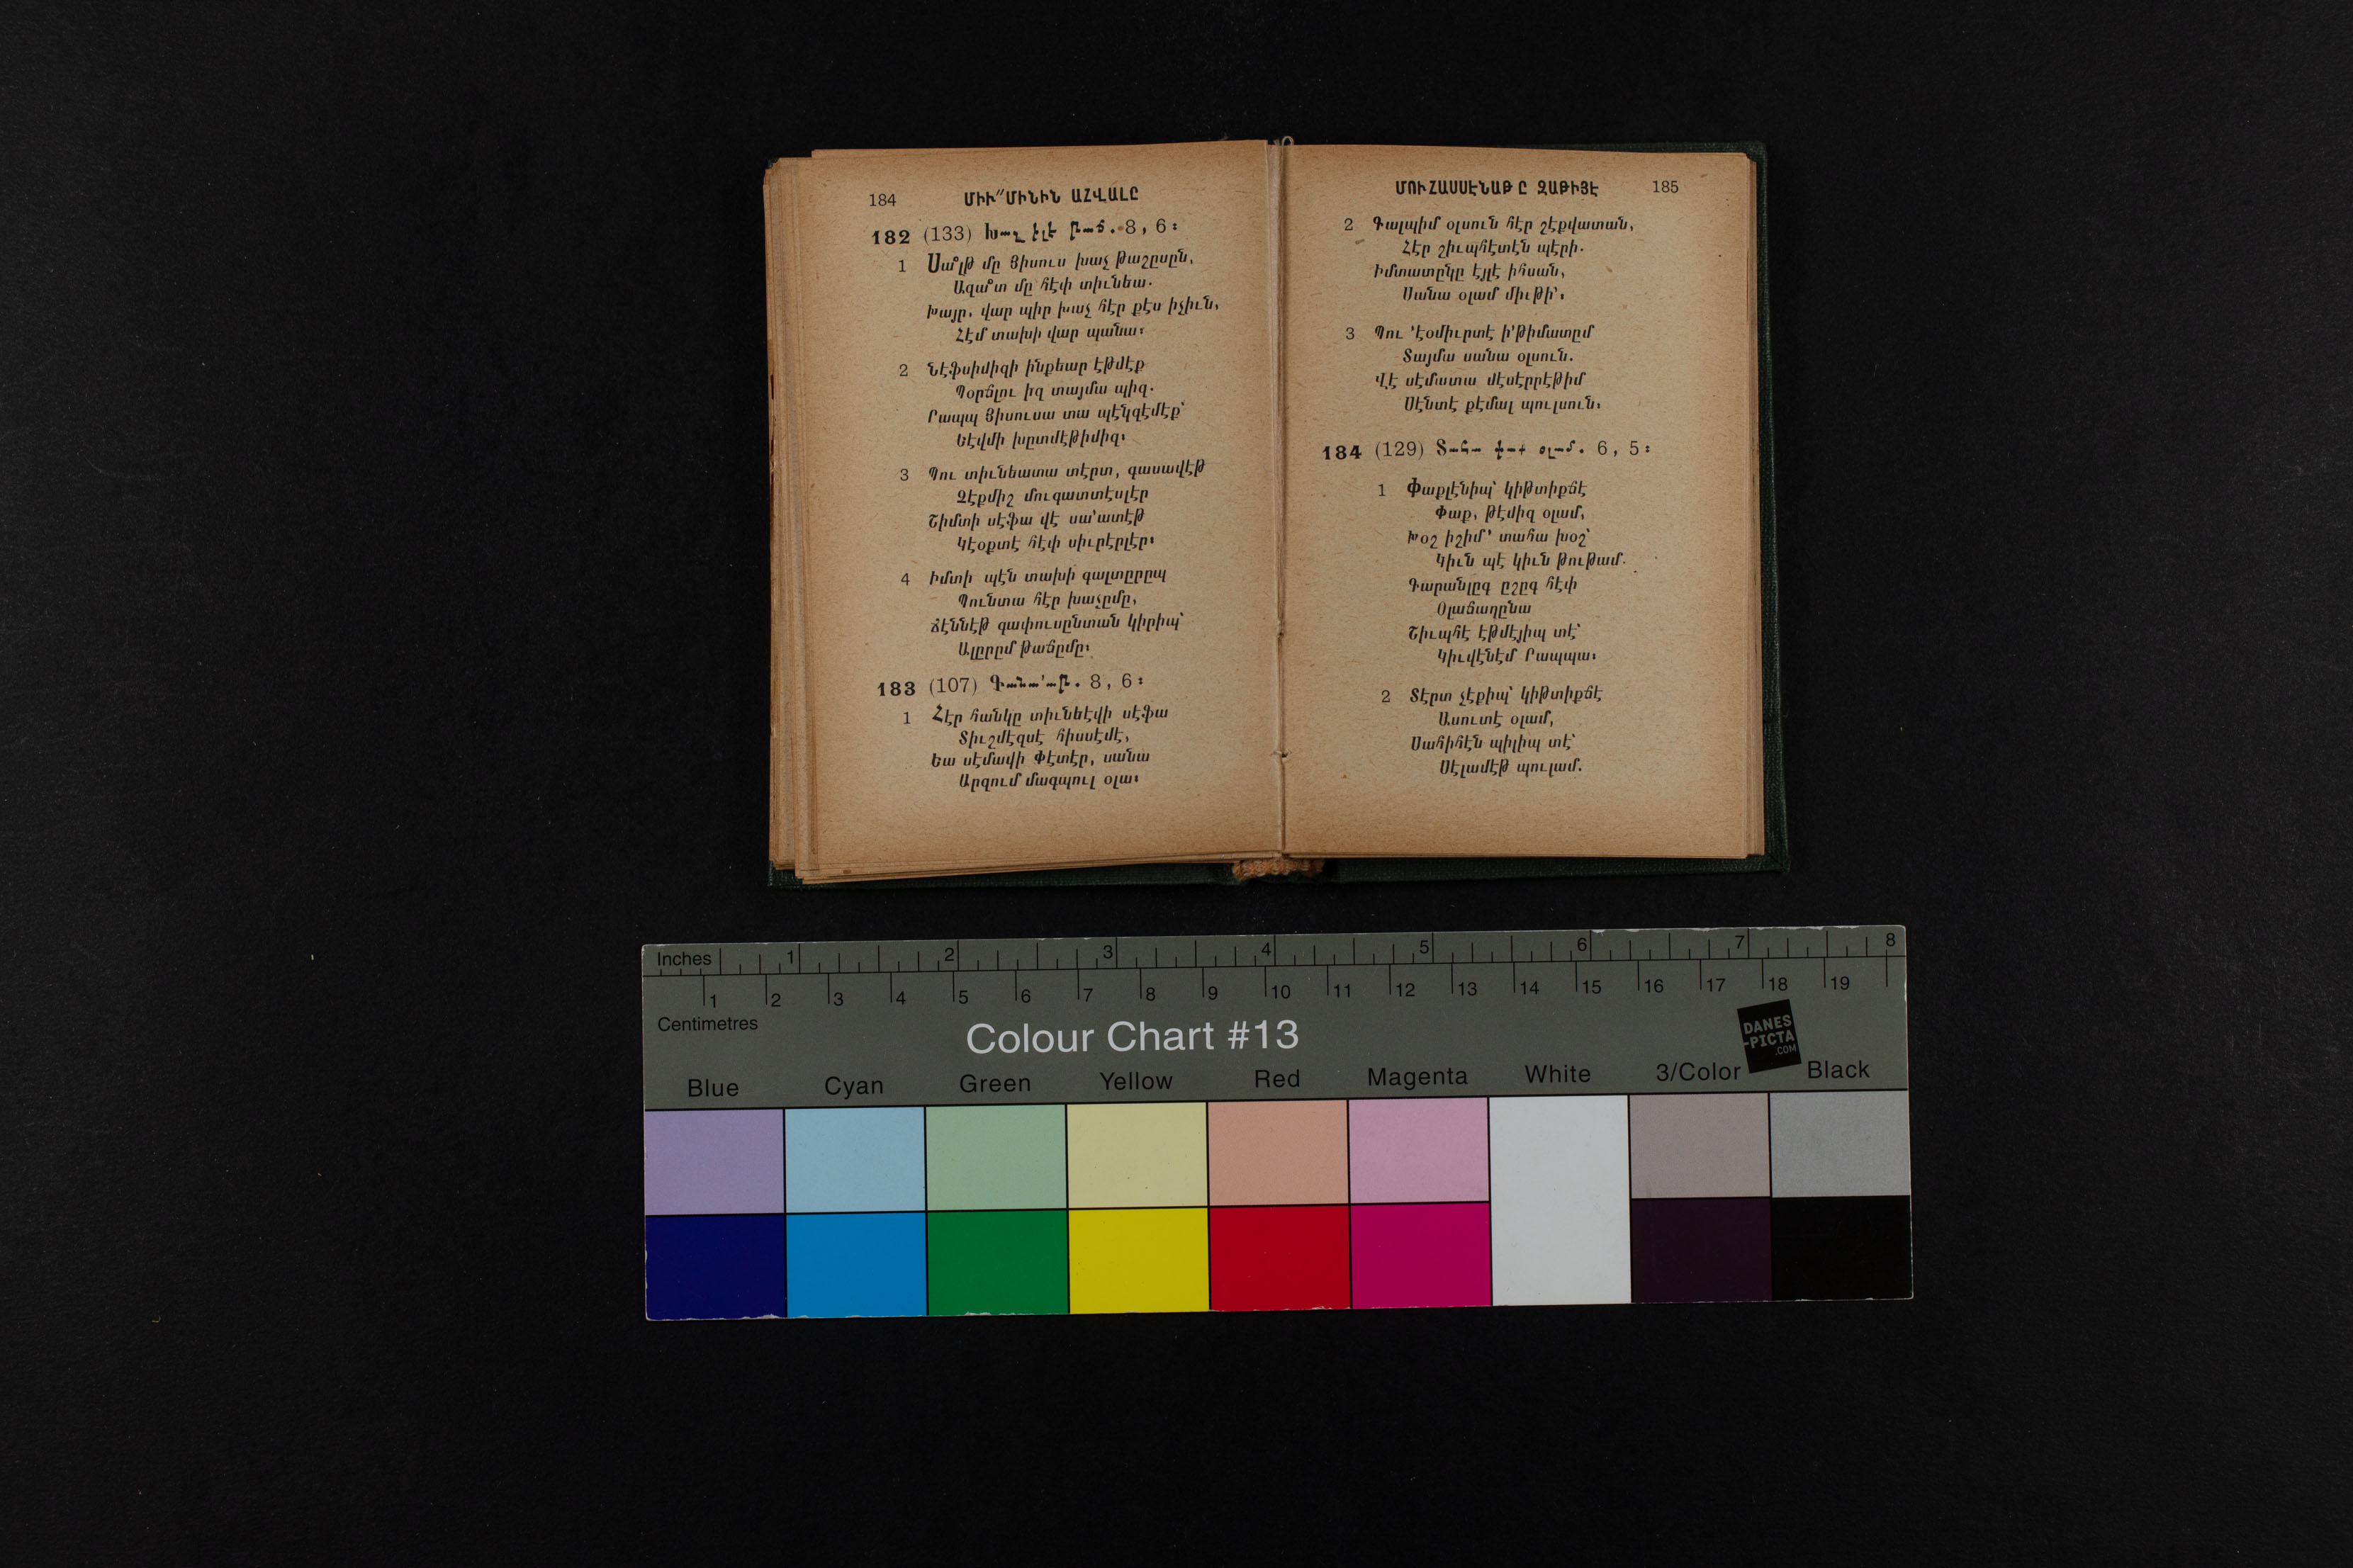 184 ՄԻՒ՛՛ՄԻՆԻՆ ԱՀՎԱԼԸ
182 (133) Խաչ էլէ թաճ. 8, 6։
1 Սա՞լթ մը Յիսուս խաչ թաշըսըն,
Ազա՞տ մը հէփ տիւնեա.
Խայր, վար պիր խաչ հէր քէս իչիւն,
Հէմ տախի վար պանա։
2 Նէֆսիմիզի ինքեար էթմէք
Պօրճլու իզ տայմա պիզ.
Րապպ Յիսուսա տա պէնզէմէք՝
Եէվմի խըտմէթիմիզ։
3 Պու տիւնեատա տէրտ, գասավէթ
Չէքմիշ մուգատտէսլէր
Շիմտի սէֆա վէ սա՛ատէթ
Կէօքտէ հէփ սիւրէրլէր։
4 Իմտի պէն տախի գալտըրըպ
Պունտա հէր խաչըմը,
Ճէննէթ գափուսընտան կիրիպ՝
Ալըրըմ թաճըմը։
183 (107) Գանա՛աթ. 8, 6։
1 Հէր հանկը տիւնեէվի սէֆա
Տիւշմէզսէ հիսսէմէ,
Եա սէմավի Փէտէր, սանա
Արզում մագպուլ օլա։
ՄՈՒՀԱՍՍԷՆԱԹ Ը ԶԱԹԻՅԷ 185
2 Գալպիմ օլսուն հէր շէքվատան,
Հէր շիւպհէտէն պէրի.
Իմտատընկը էյլէ իհսան,
Սանա օլամ միւթի՛։
3 Պու ՛էօմիւրտէ ի՛թիմատըմ
Տայմա սանա օլսուն.
Վէ սէմատա մէսէրրէթիմ
Սէնտէ քէմալ պուլսուն։
184 (129) Տահա փաք օլամ. 6, 5։
1 Փաքլէնիպ՝ կիթտիքճէ
Փաք, թէմիզ օլամ,
Խօշ իշիմ՝ տահա խօշ՝
Կիւն պէ կիւն թութամ.
Գարանլըգ ըշըգ հէփ
Օլաճաղընա
Շիւպհէ էթմէյիպ տէ՝
Կիւվէնէմ Րապպա։
2 Տէրտ չէքիպ՝ կիթտիքճէ
Ասուտէ օլամ,
Սահիհէն պիլիպ տէ՝
Սէլամէթ պուլամ.
Inches 1 2 3 4 5 6 7 8
1 2 3 4 5 6 7 8 9 10 11 12 13 14 15 16 17 18 19
Centimetres
Colour Chart #13
DANES
-PICTA
.COM
Blue Cyan Green Yellow Red Magenta White 3/Color Black